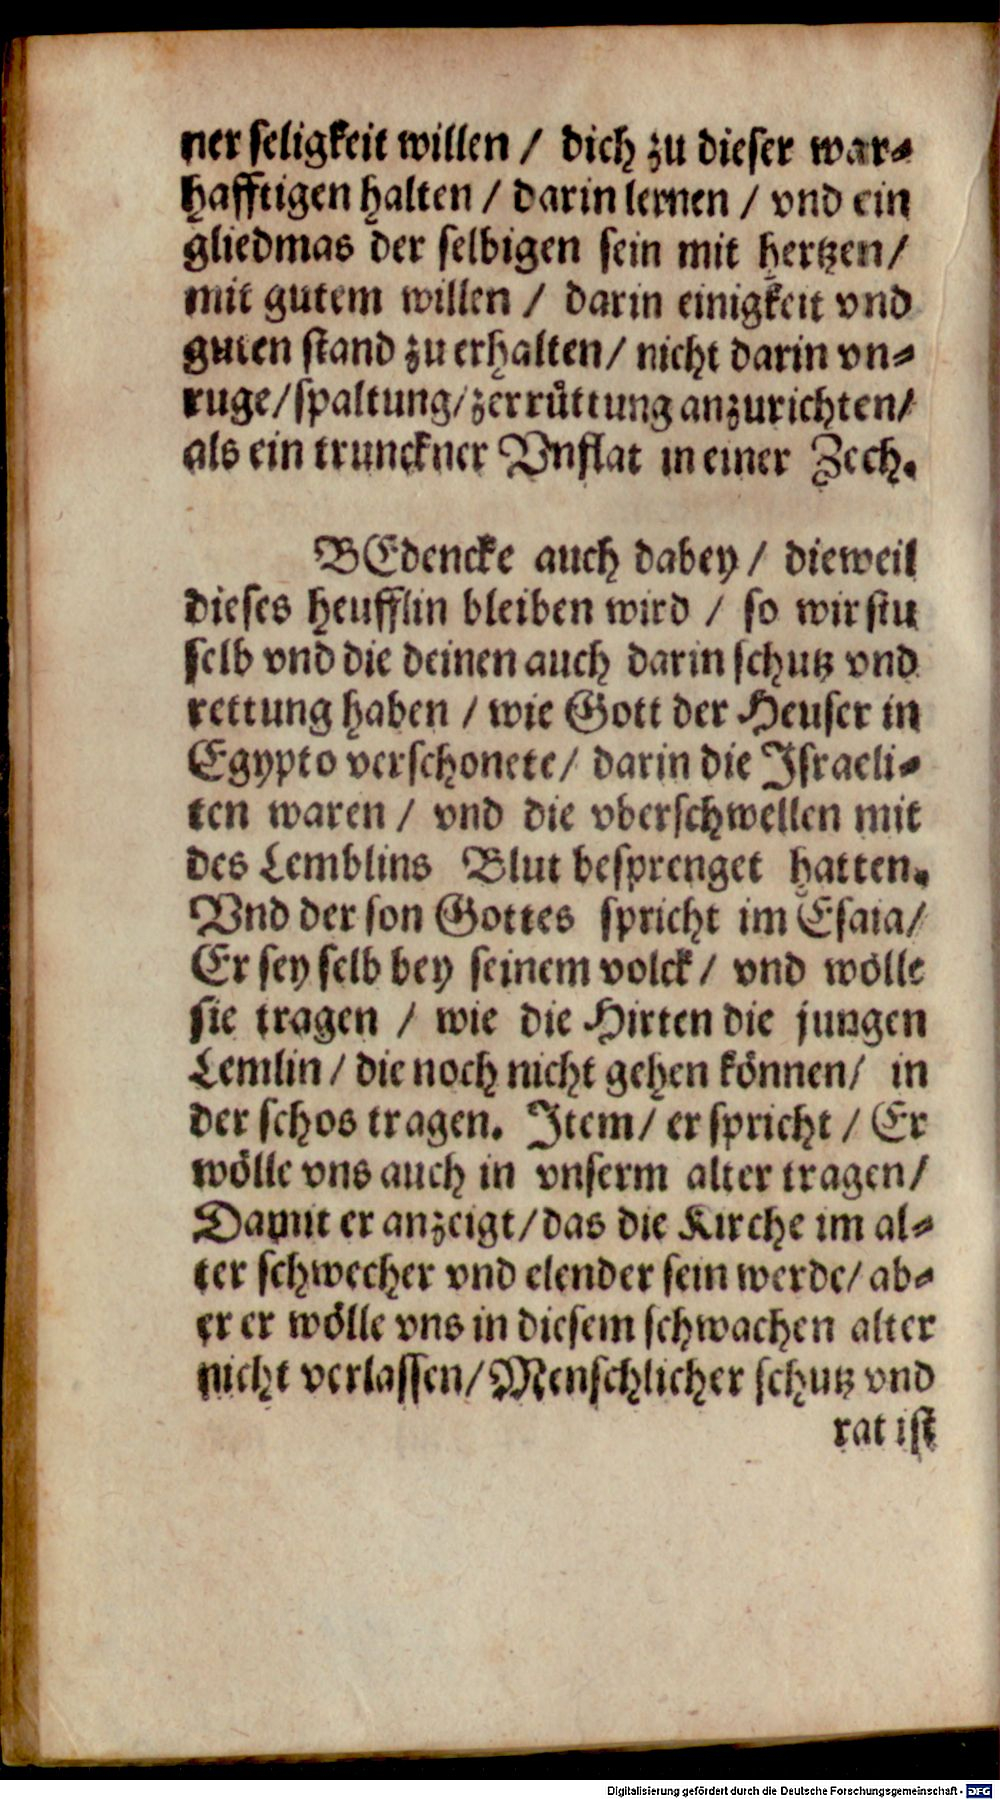 ner seligkeit willen / dich zu dieser war-
hafftigen halten / darin lernen / vnd ein
gliedmas der selbigen sein mit hertzen/
mit gutem willen / darin einigkeit vnd
guten stand zu erhalten/ nicht darin vn-
ruge/spaltung/zerrüttung anzurichten/
als ein trunckner Vnflat in einer Zech.
BEdencke auch dabey / dieweil
dieses heufflin bleiben wird / so wirstu
selb vnd die deinen auch darin schutz vnd
rettung haben / wie Gott der Heuser in
Egypto verschonete/ darin die Israeli-
ten waren / vnd die vberschwellen mit
des Lemblins Blut besprenget hatten.
Vnd der son Gottes spricht im Esaia/
Er sey selb bey seinem volck / vnd wölle
sie tragen / wie die Hirten die jungen
Lemlin / die noch nicht gehen können/ in
der schos tragen. Item/ er spricht / Er
wölle vns auch in vnserm alter tragen/
Damit er anzeigt/das die Kirche im al-
ter schwecher vnd elender sein werde/ ab-
er er wölle vns in diesem schwachen alter
nicht verlassen/Menschlicher schutz vnd
rat ist
Digitalisierung gefördert durch die Deutsche Forschungsgemeinschaft - DFG